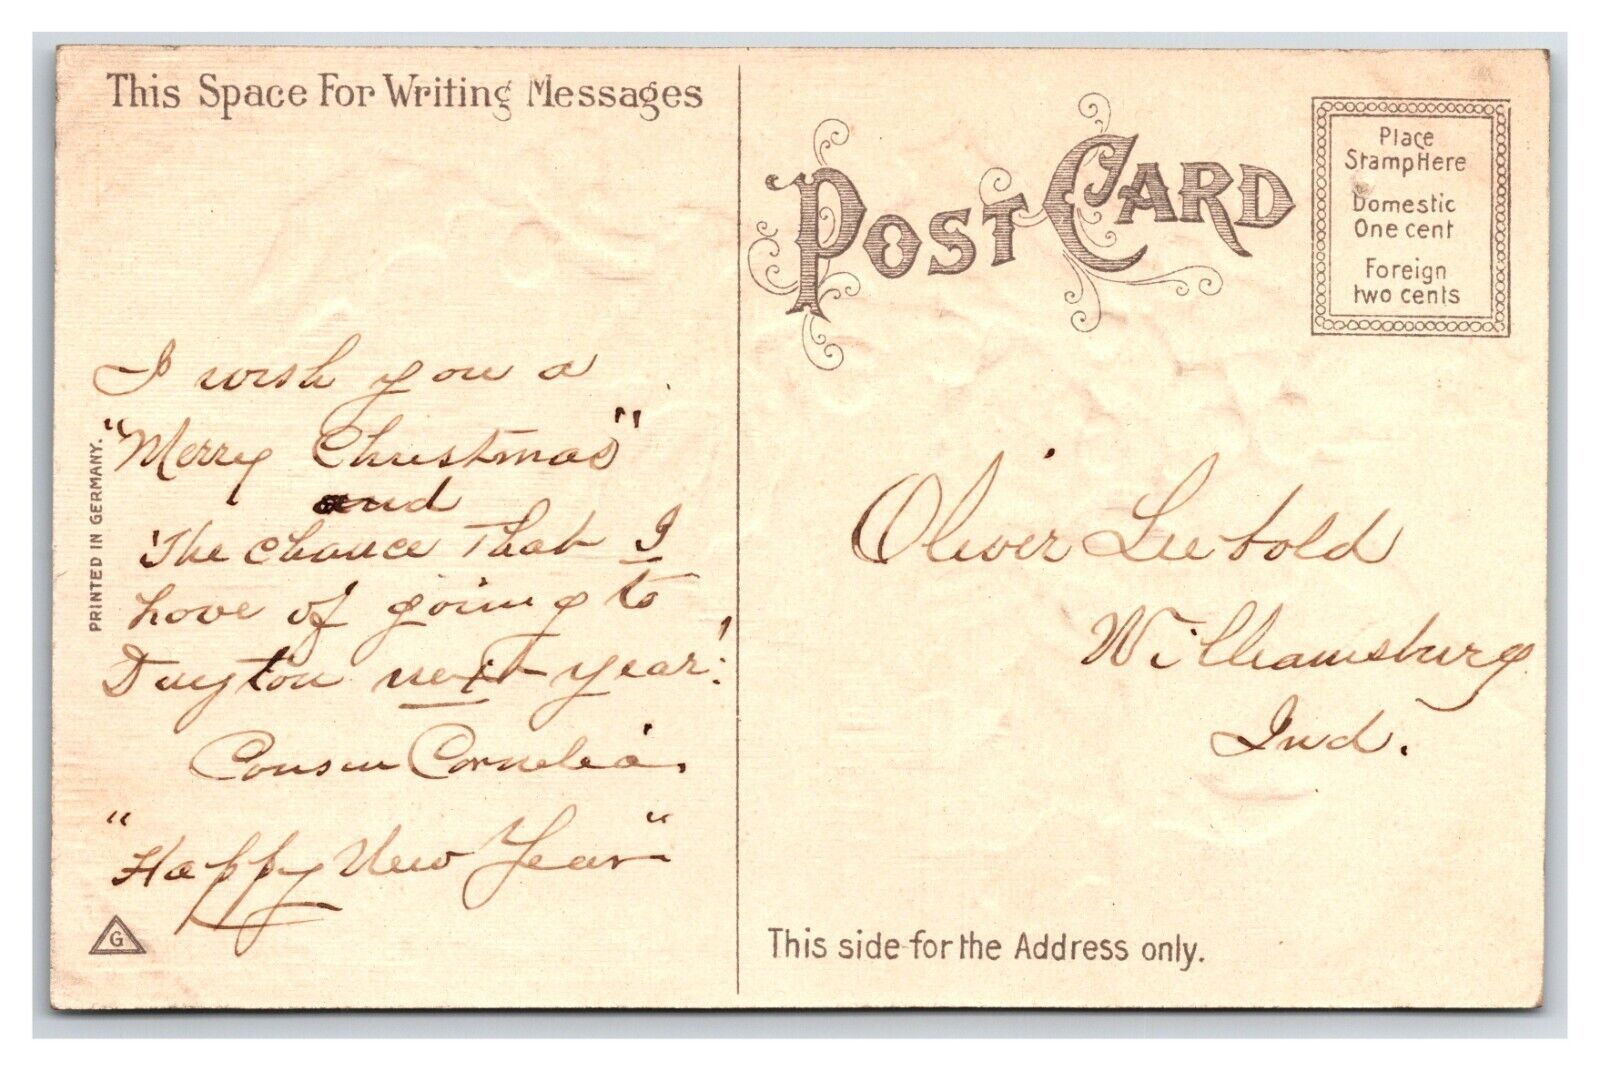 This Space For Writing Messages
I wish you a
"Merry Christmas"
and
The chance that I
have of going to
Dayton next year!
Cousin Cornelia.
"Happy New Year"
PRINTED IN GERMANY.
G
POST CARD
Place
Stamp Here
Domestic
One cent
Foreign
two cents
Oliver Leibold
Williamsburg
Ind.
This side for the Address only.